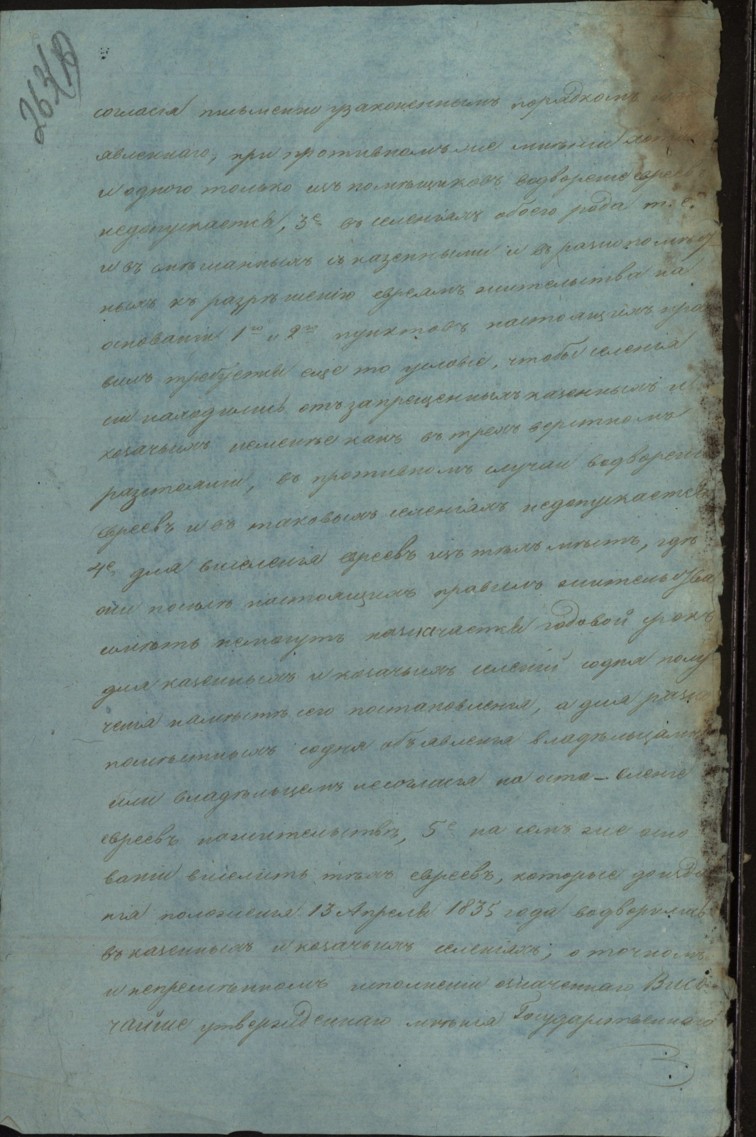 263(8)
согласія письменно узаконеннымъ порядкомъ
явленнаго, при противномъ же мнѣніи хотя
и одного только изъ помѣщиковъ водвореніе евре
недопускается, 3е въ селеніяхъ обоего рода т. е.
и въ смѣшанныхъ съ казенными и въ разнопомѣст
ныхъ къ разрѣшенію евреямъ жительства на
основаніи 1го и 2го пунктовъ настоящихъ пра
вилъ требуется еще то условіе, чтобы селенія
сіи находились отъ запрещенныхъ казенныхъ и
козачьихъ неменѣе какъ въ трехъ верстномъ
разстояніи, въ противномъ случаи водвореніе
евреевъ и въ таковыхъ селеніяхъ недопускается
4е для выселенія евреевъ изъ тѣхъ мѣстъ, гдѣ
они послѣ настоящихъ правилъ жительства
имѣть немогутъ назначается годовой срокъ
для казенныхъ и козачьихъ селеній содня полу
ченія намѣстѣ сего постановленія, а для разно
помѣстныхъ содня объявленія владѣльцами
или владѣльцемъ несогласія на оставленіе
евреевъ нажительствѣ, 5е на семъ же осно
ваніи выселить тѣхъ евреевъ, которые до изда
нія положенія 13 Апреля 1835 года водворились
въ казенныхъ и козачьихъ селеніяхъ; о точномъ
и непремѣнномъ исполненіи означеннаго Высо
чайше утвержденнаго мнѣнія Государственнаго